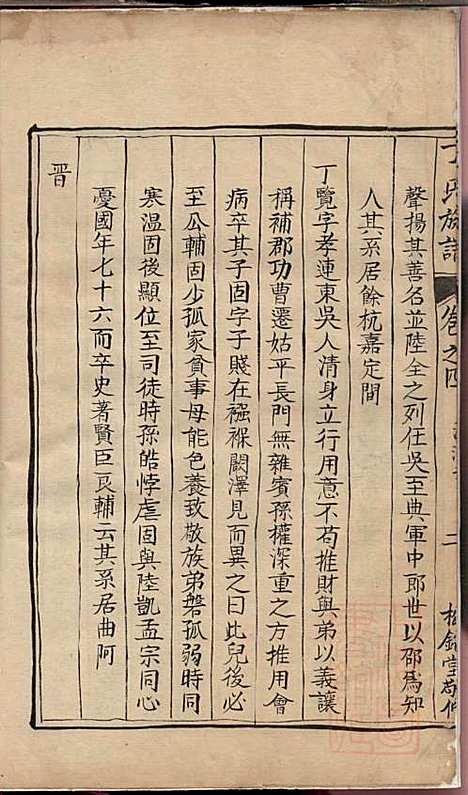 聲揚其善名並陸全之列任吳至典軍中郎世以邵為知
人其系居餘杭嘉定間
丁覽字孝連東吳人清身立行用意不苟推財與弟以義讓
稱補郡功曹遷姑平長門無雜賓孫權深重之方推用會
病卒其子固字子賤在襁褓闞澤見而異之曰此兒後必
至公輔固少孤家貧事母能色養致敬族弟磐孤弱時同
寒温固後顯位至司徒時孫皓悖虐固與陸凱孟宗同心
憂國年七十六而卒史著賢臣良輔云其系居曲阿
晋
丁氏族譜
卷之四
二
松銘堂